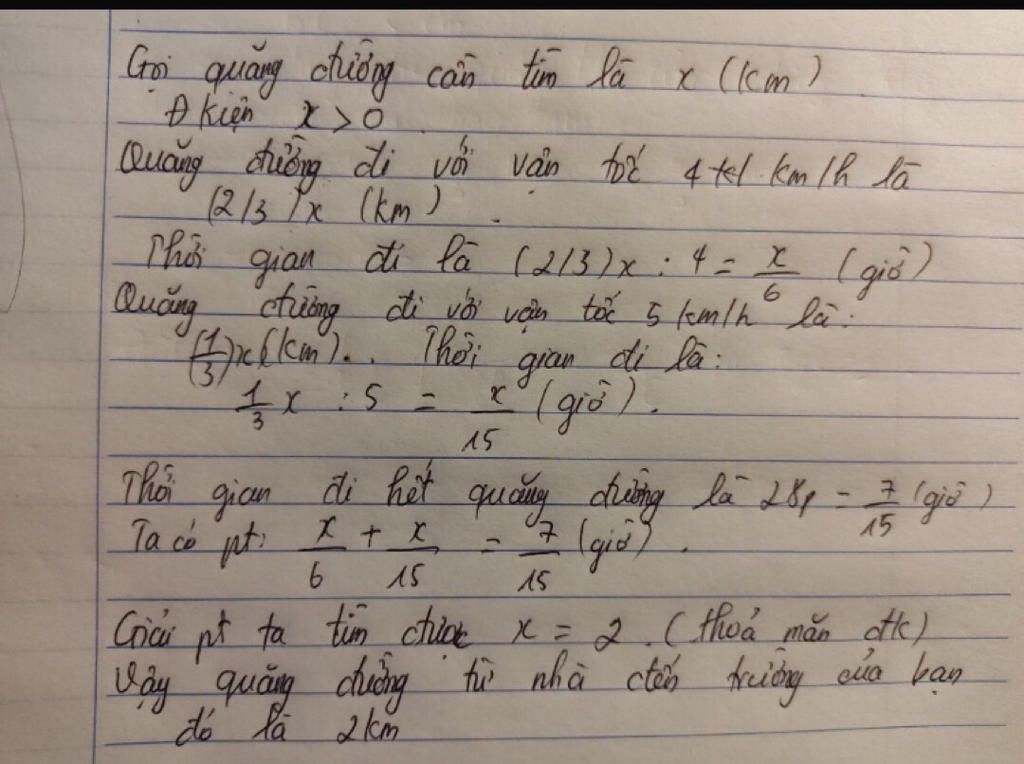 Gọi quãng đường cần tìm là x (km)
Đ kiện x > 0
Quãng đường đi với vận tốc 4 km/h là
(2/3)x (km).
Thời gian đi là (2/3)x : 4 = x/6 (giờ)
Quãng đường đi với vận tốc 5 km/h là:
(1/3)x (km). Thời gian đi là:
1/3 x : 5 = x/15 (giờ).
Thời gian đi hết quãng đường là 28p = 7/15 (giờ)
Ta có pt: x/6 + x/15 = 7/15 (giờ).
Giải pt ta tìm được x = 2. (thoả mãn đk)
Vậy quãng đường từ nhà đến trường của bạn
đó là 2km